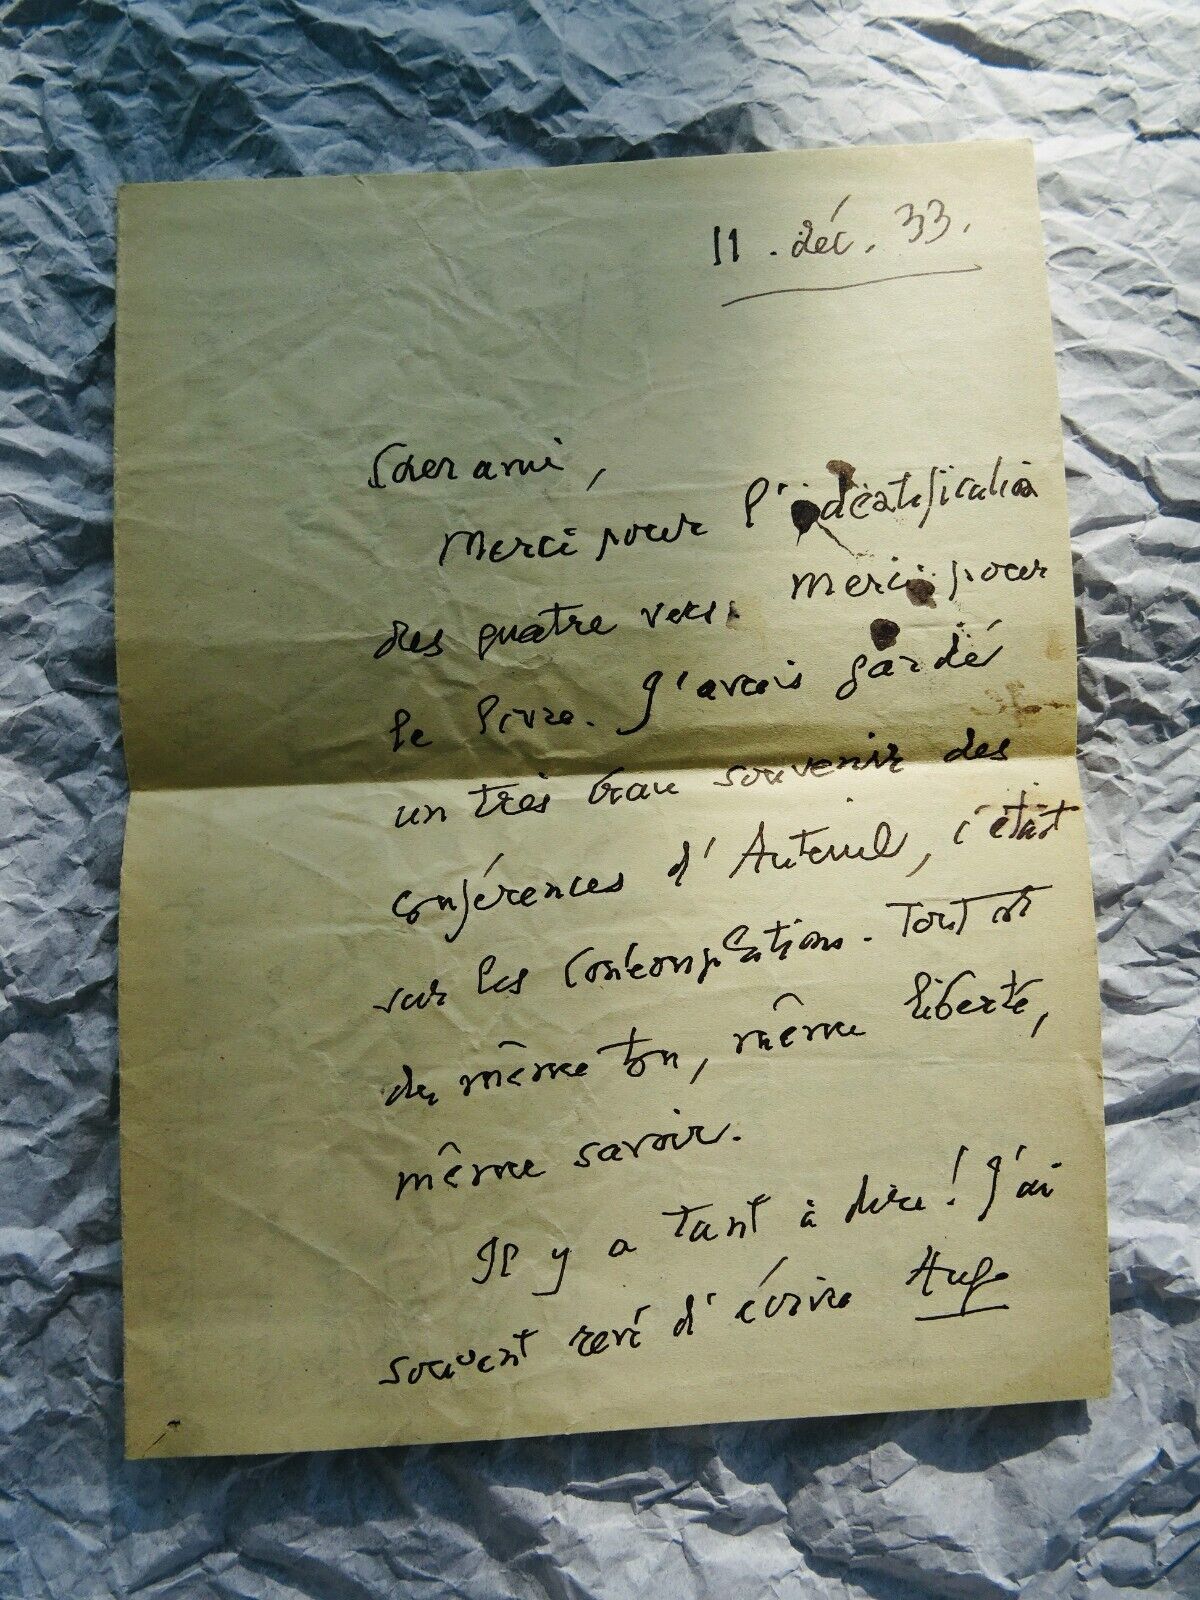 11. déc. 33.
Cher ami,
Merci pour l'identification
des quatre vers. Merci pour
le livre. J'avais gardé
un très beau souvenir des
conférences d'Auteuil, c'était
sur les Contemplations. Tout est
du même ton, même liberté,
même savoir.
Il y a tant à dire! J'ai
souvent rêvé d'écrire Hugo